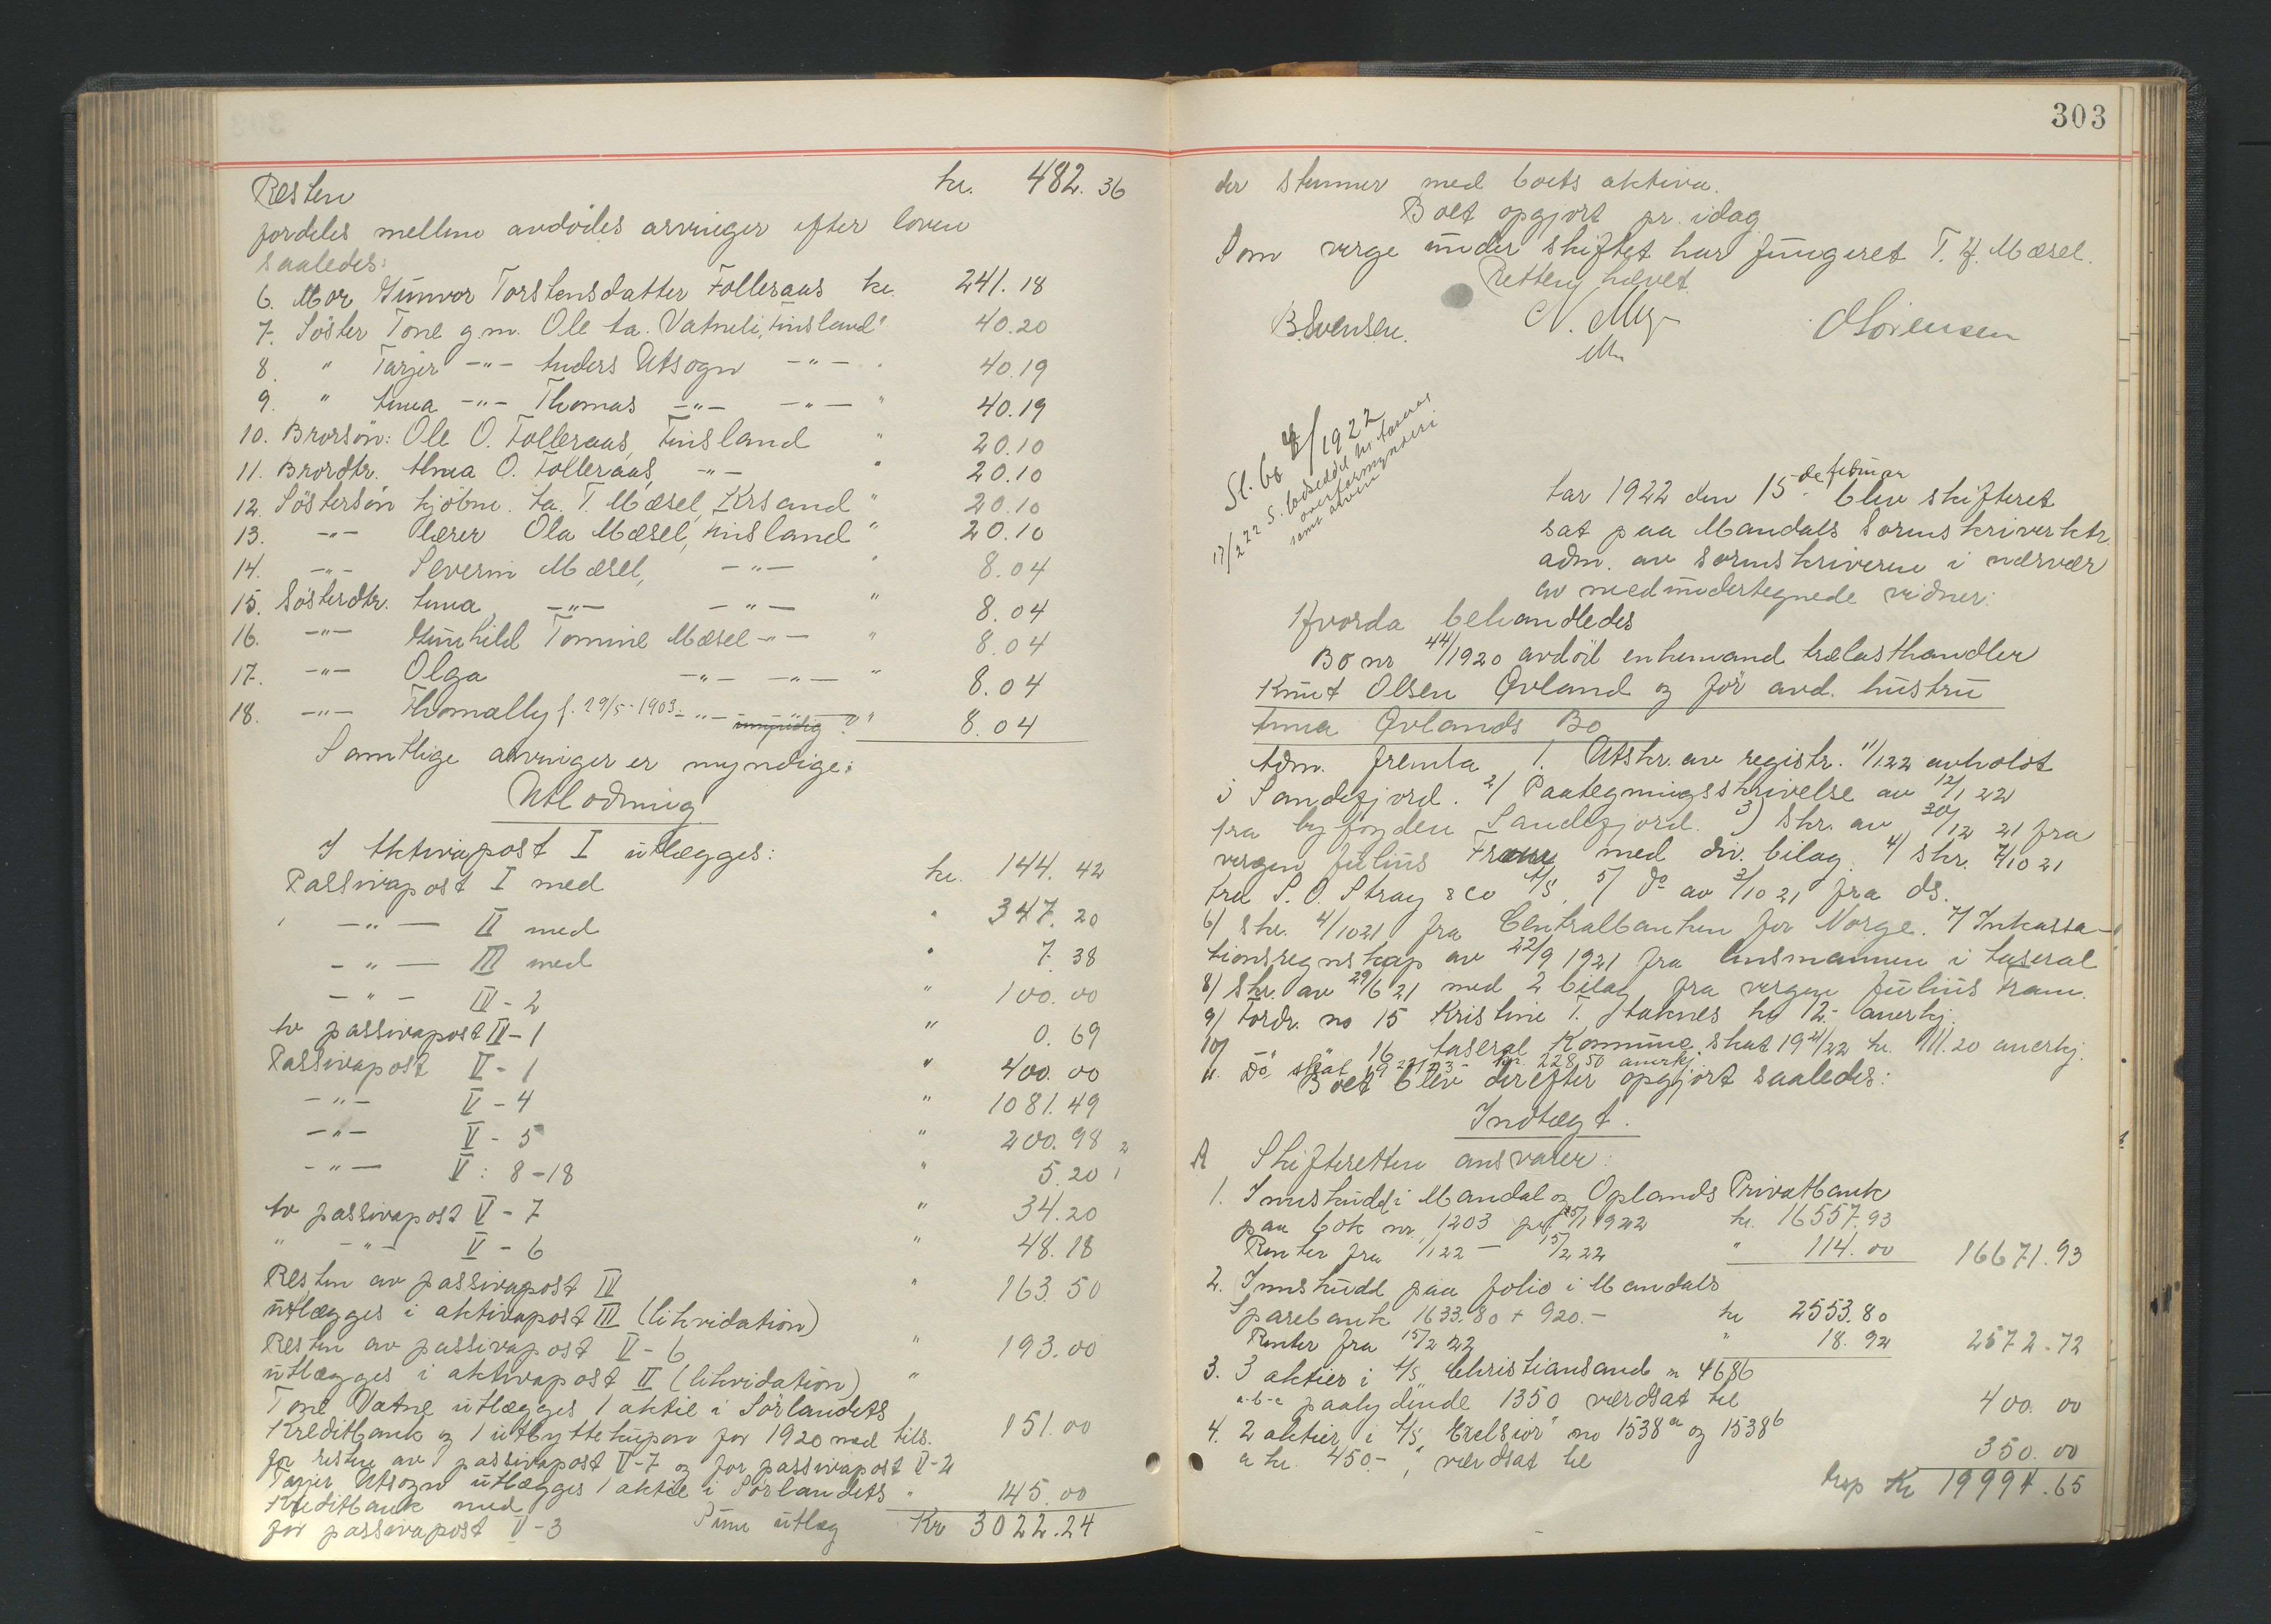 Resten kr. 482.36
fordeles mellem avdödes arvinger efter loven
saaledes:
6. Mor Gunvor Torstensdatter Folleraas kr. 241.18
7. Söster Tone g.m. Ole Aa. Vatneli, Finsland " 40.20
8. " Tarjer -"- Anders Utsogn -"- " 40.19
9. " Anna -"- Thomas -"- -"- " 40.19
10. Brorsön: Ole O. Folleraas, Finsland " 20.10
11. Brordtr. Anna O. Folleraas, -"- " 20.10
12. Söstersön kjöbm. Aa. T. Mæsel, Krsand " 20.10
13. -"- lærer Ola Mæsel, Finsland " 20.10
14. -"- Severin Mæsel, -"- " 8.04
15. Sösterdtr. Anna -"- -"- " 8.04
16. -"- Gunhild Tomine Mæsel -"- " 8.04
17. -"- Olga -"- -"- " 8.04
18. -"- Thomally f. 29/5-1903 -"- -"- umyndig? " 8.04
Samtlige arvinger er myndige.
Utlodning
I Aktivapost I utlægges:
Passivapost I med kr. 144.42
-"- II med " 347.20
-"- III med " 7.38
-"- IV - 2 " 100.00
Av passivapost IV - 1 " 0.69
Passivapost V - 1 " 400.00
-"- V - 4 " 1081.49
-"- V - 5 " 200.98
-"- V: 8-18 " 5.20
Av passivapost V - 7 " 34.20
" -"- V - 6 " 48.18
Resten av passivapost IV " 163.50
utlægges i aktivapost III (likvidation)
Resten av passivapost V - 6 " 193.00
utlægges i aktivapost II (likvidation) "
Tone Vatne utlægges 1 aktie i Sörlandets
Kreditbank og 1 utbyttekupon for 1920 med tils. 151.00
for resten av passivapost V-7 og for passivapost V-2
Tarjer Utsogn utlægges 1 aktie i Sörlandets " 145.00
Kreditbank med
for passivapost V-3 Sum utlæg Kr 3022.24
303
der stemmer med boets aktiva.
Boet opgjort pr. idag.
Som verge under skiftet har fungeret T. G. Mæsel.
Retten hævet.
B. Svensen. N. OSörensen
Sl. bg /1922
17/2 22 s. lodseddel til Aaserals
overformynderi
samt arving
Aar 1922 den 15de februar blev skifteret
sat paa Mandals Sorenskriverktr.
adm. av sorenskriveren i nærvær
av medundertegnede vidner:
Hvorda behandledes
Bo nr 44/1920 avdöde enkemand trælasthandler
Knut Olsen Øvland og för avd. hustru
Anna Øvlands Bo
Adm. fremla 1. Utskr. av registr. 11/1 22 avholdt
i Sandefjord. 2/ Paategningsskrivelse av 12/1 22
fra byfogden Sandefjord. 3) skr. av 30/12 21 fra
vergen Julius Fram med div. bilag. 4/ skr. 7/10 21
fra S. O. Stray & Co A/S, 5/ do av 3/10 21 fra ds.
6/ skr. 4/10 21 fra Centralbanken for Norge. 7/ Inkassa-
tionsregnskap av 22/9 1921 fra lensmannen i Aaseral
8/ Skr. av 29/6 21 med 2 bilag fra vergen Julius Fram.
9/ Fordr. no 15 Kristine T. Staknes kr 12.- anerkj.
10/ -"- " 16 Aaseral Kommune skat 1921/22 kr. 111.20 anerkj.
11. Do skat 1922/23 - kr. 228,50 anerkj
Boet blev derefter opgjort saaledes:
Indtægt.
A Skifteretten ansvarer:
1. Innskudd i Mandal og Oplands Privatbank
paa bok nr 1203 pr 15/1 1922 kr. 16557.93
Renter fra 1/1 22 - 15/2 22 " 114.00 16671.93
2. Innskudd paa folio i Mandals
Sparebank 1633.80 + 920.- kr 2553.80
Renter fra 15/2 22 " 18.92 2572.72
3. 3 aktier i A/S Christiansand nr 4686
a-b-c paalydende 1350 værdsat til 400.00
4. 2 aktier i A/S "Excelsior" no 1538a og 1538b
a kr. 450.-, værdsat til 350.00
trsp Kr 19994.65